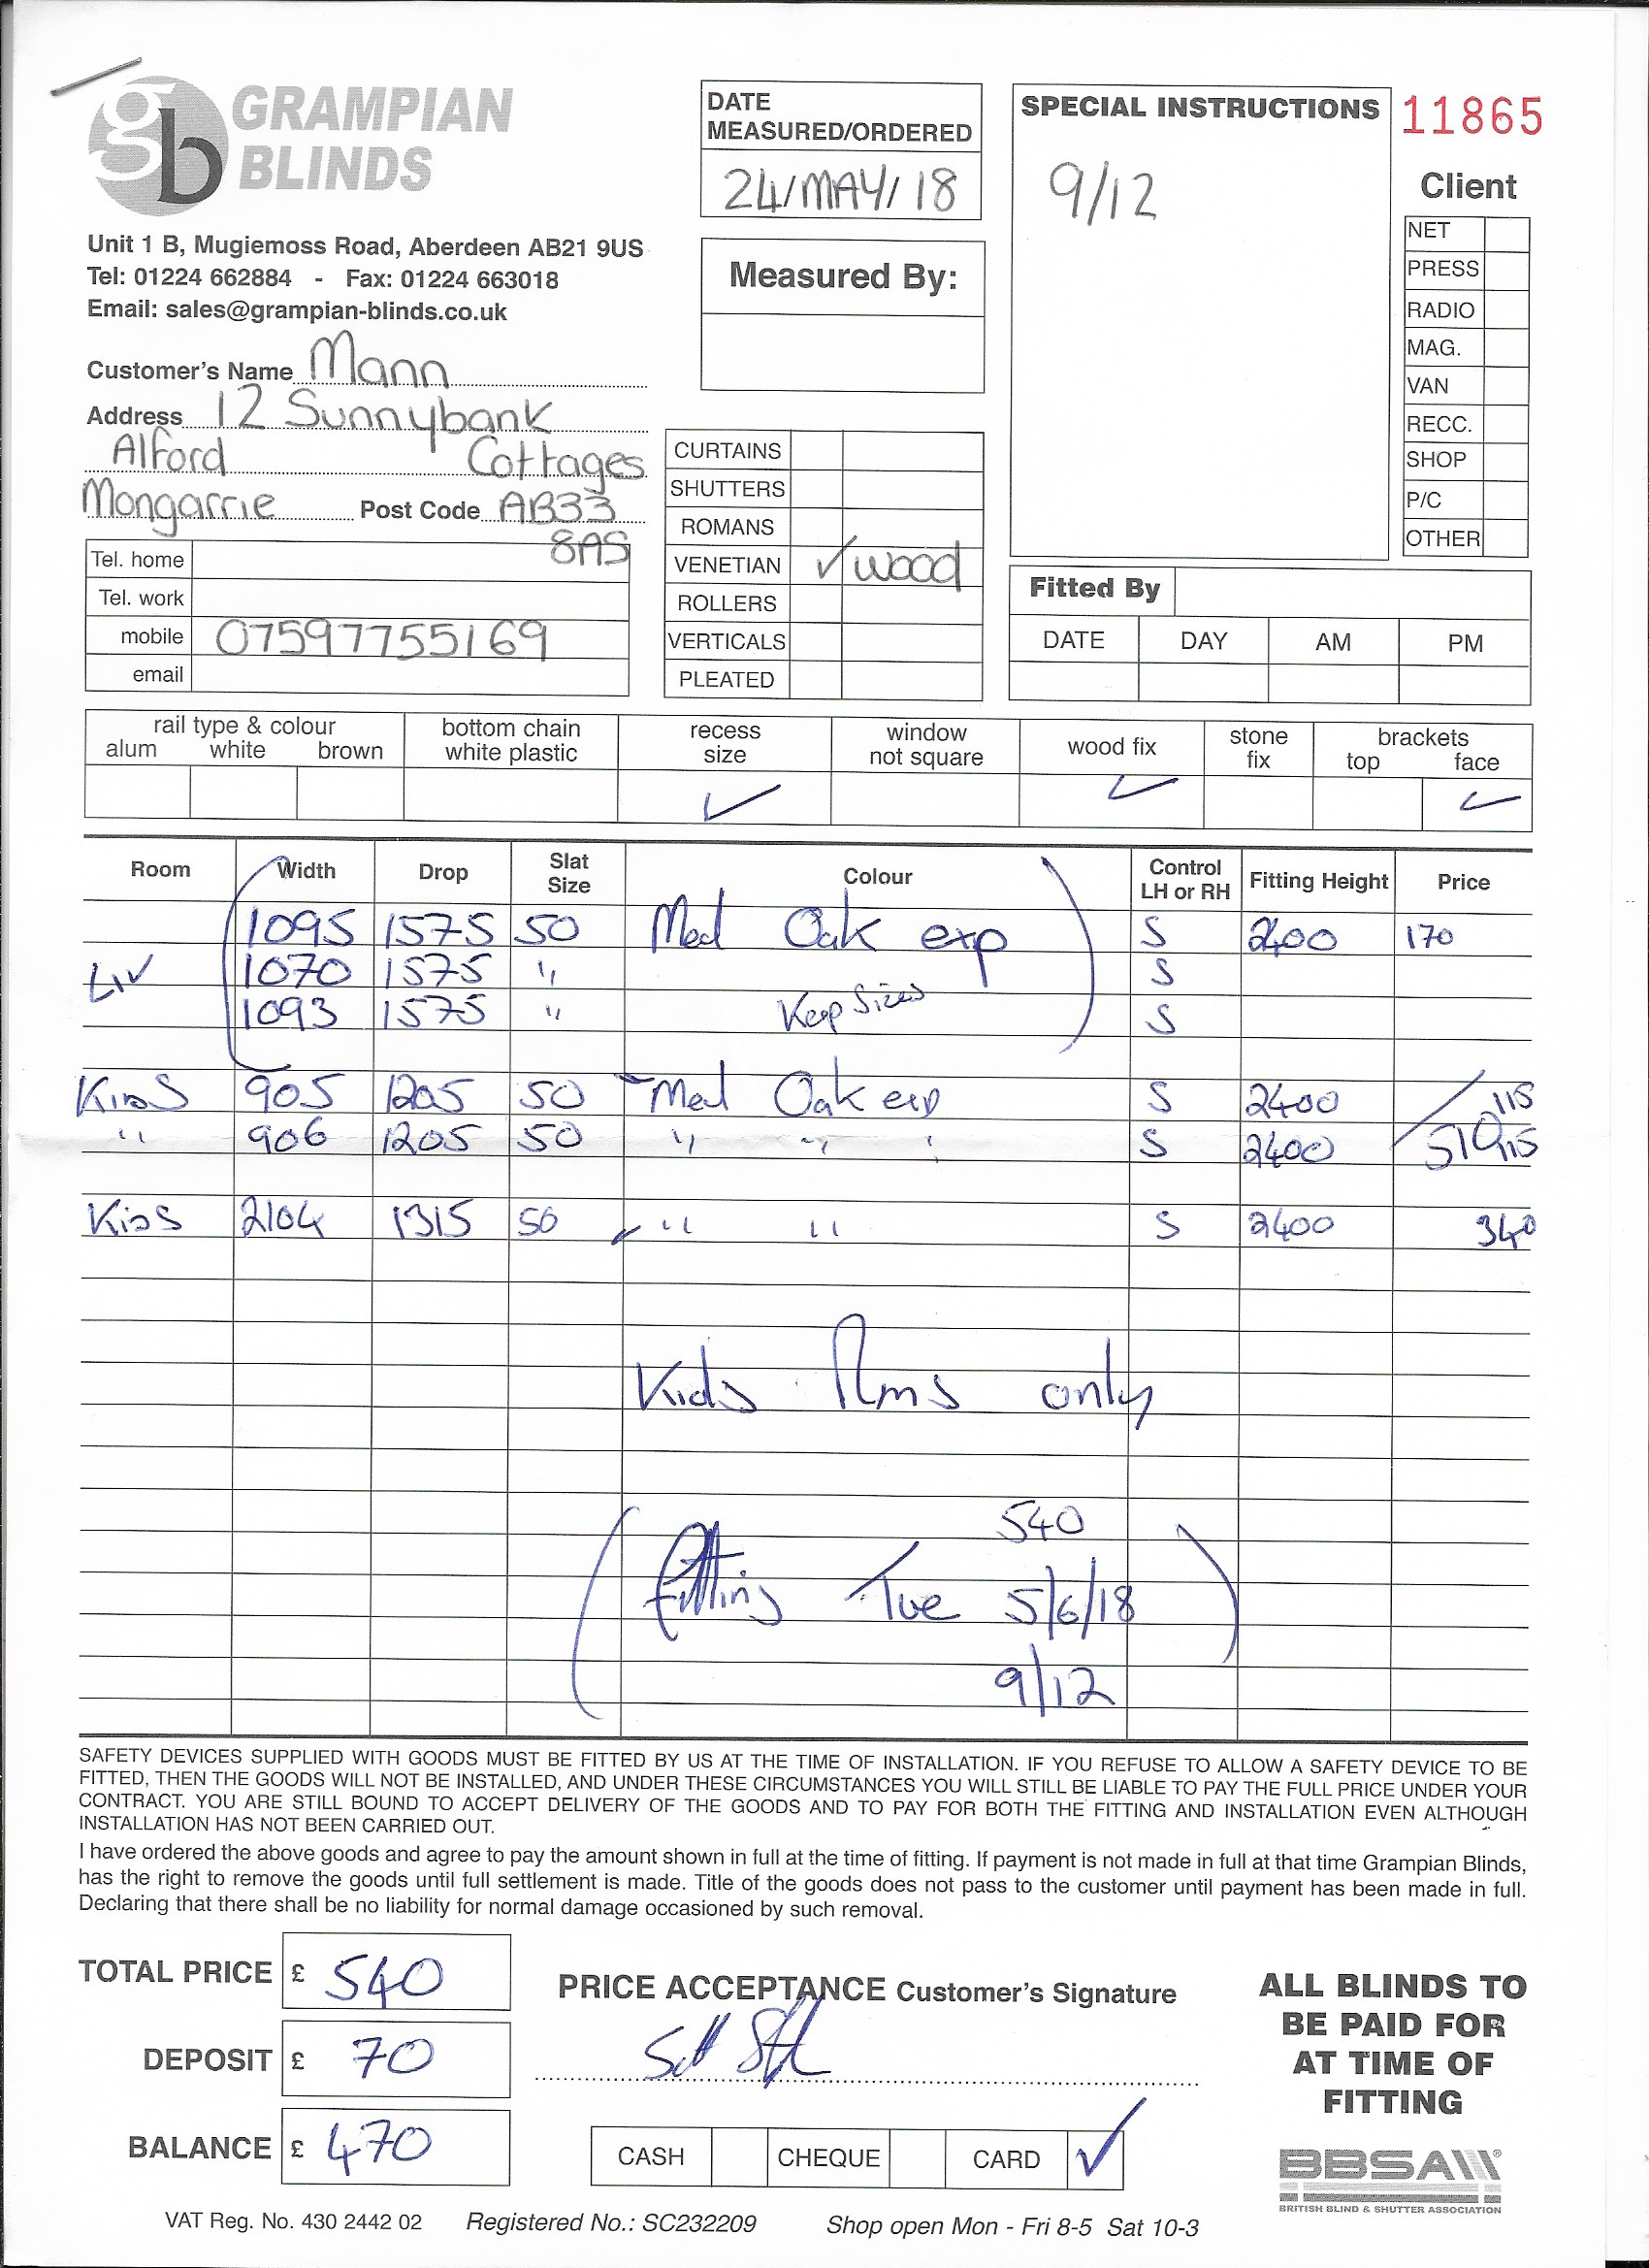 gb GRAMPIAN
BLINDS
Unit 1 B, Mugiemoss Road, Aberdeen AB21 9US
Tel: 01224 662884 - Fax: 01224 663018
Email: sales@grampian-blinds.co.uk
Customer's Name Mann
Address 12 Sunnybank
Alford Cottages
Mongarrie Post Code AB33
8AS
Tel. home
Tel. work
mobile 07597755169
email
DATE
MEASURED/ORDERED
24/MAY/18
Measured By:
CURTAINS
SHUTTERS
ROMANS
VENETIAN ✓ wood
ROLLERS
VERTICALS
PLEATED
SPECIAL INSTRUCTIONS
9/12
11865
Client
NET
PRESS
RADIO
MAG.
VAN
RECC.
SHOP
P/C
OTHER
Fitted By
DATE DAY AM PM
rail type & colour
alum white brown
bottom chain
white plastic
recess
size
✓
window
not square
wood fix
✓
stone
fix
brackets
top face
✓
Room Width Drop Slat Size Colour Control LH or RH Fitting Height Price
1095 1575 50 Med Oak exp S 2400 170
Liv 1070 1575 " S
1093 1575 " Keep Sizes S
Kids 905 1205 50 Med Oak exp S 2400 115
" 906 1205 50 " " " S 2400 510 115
Kids 2104 1315 50 " " S 2400 340
Kids Rms only
540
Fitting Tue 5/6/18
9/12
SAFETY DEVICES SUPPLIED WITH GOODS MUST BE FITTED BY US AT THE TIME OF INSTALLATION. IF YOU REFUSE TO ALLOW A SAFETY DEVICE TO BE
FITTED, THEN THE GOODS WILL NOT BE INSTALLED, AND UNDER THESE CIRCUMSTANCES YOU WILL STILL BE LIABLE TO PAY THE FULL PRICE UNDER YOUR
CONTRACT. YOU ARE STILL BOUND TO ACCEPT DELIVERY OF THE GOODS AND TO PAY FOR BOTH THE FITTING AND INSTALLATION EVEN ALTHOUGH
INSTALLATION HAS NOT BEEN CARRIED OUT.
I have ordered the above goods and agree to pay the amount shown in full at the time of fitting. If payment is not made in full at that time Grampian Blinds,
has the right to remove the goods until full settlement is made. Title of the goods does not pass to the customer until payment has been made in full.
Declaring that there shall be no liability for normal damage occasioned by such removal.
TOTAL PRICE £ 540
DEPOSIT £ 70
BALANCE £ 470
PRICE ACCEPTANCE Customer's Signature
CASH CHEQUE CARD ✓
ALL BLINDS TO
BE PAID FOR
AT TIME OF
FITTING
BBSA
BRITISH BLIND & SHUTTER ASSOCIATION
VAT Reg. No. 430 2442 02 Registered No.: SC232209 Shop open Mon - Fri 8-5 Sat 10-3